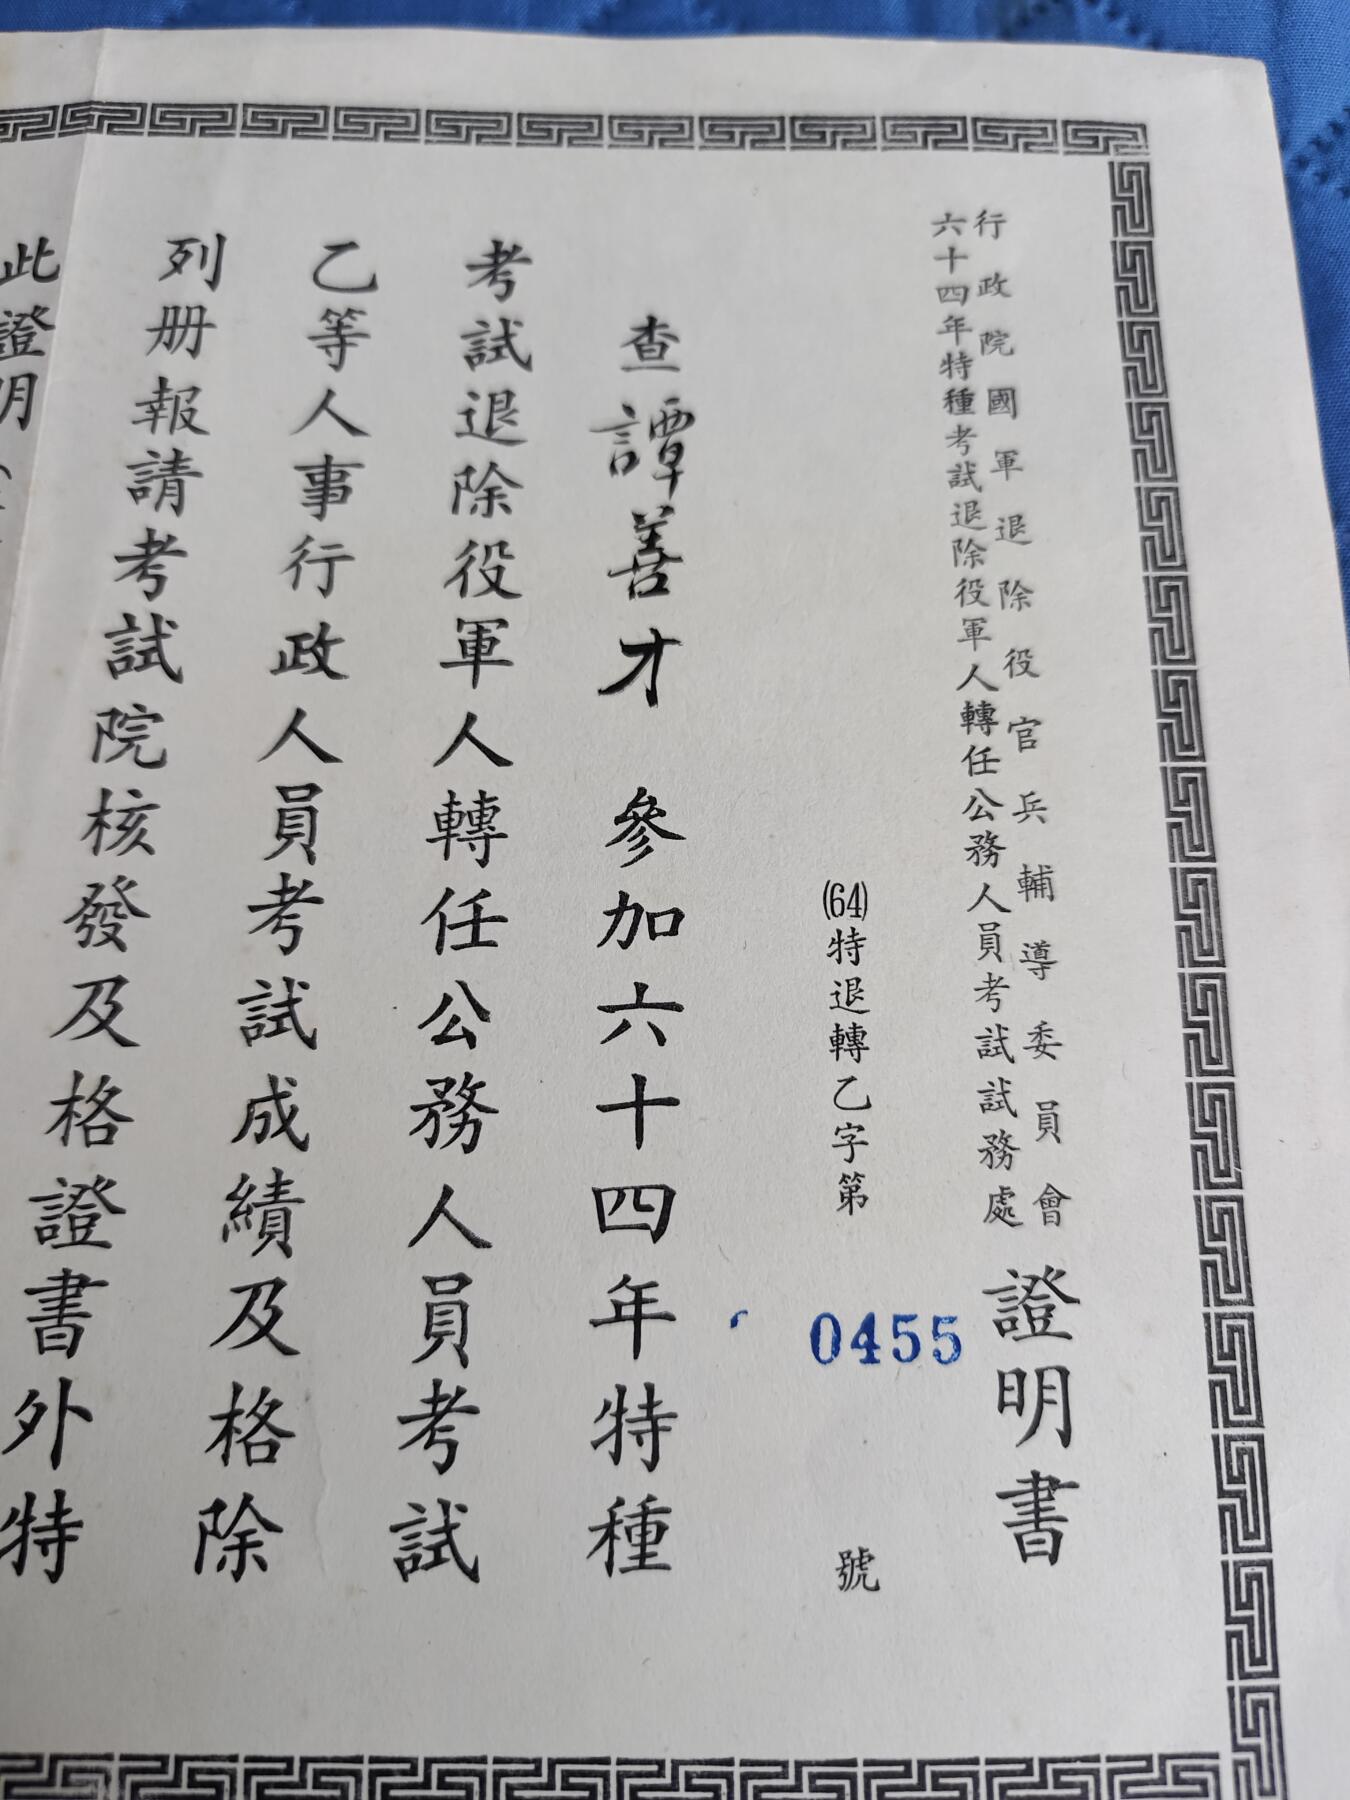 行政院國軍退除役官兵輔導委員會
六十四年特種考試退除役軍人轉任公務人員考試試務處
證明書
(64)特退轉乙字第0455號
查譚善才 參加六十四年特種
考試退除役軍人轉任公務人員考試
乙等人事行政人員考試成績及格除
列册報請考試院核發及格證書外特
此證明